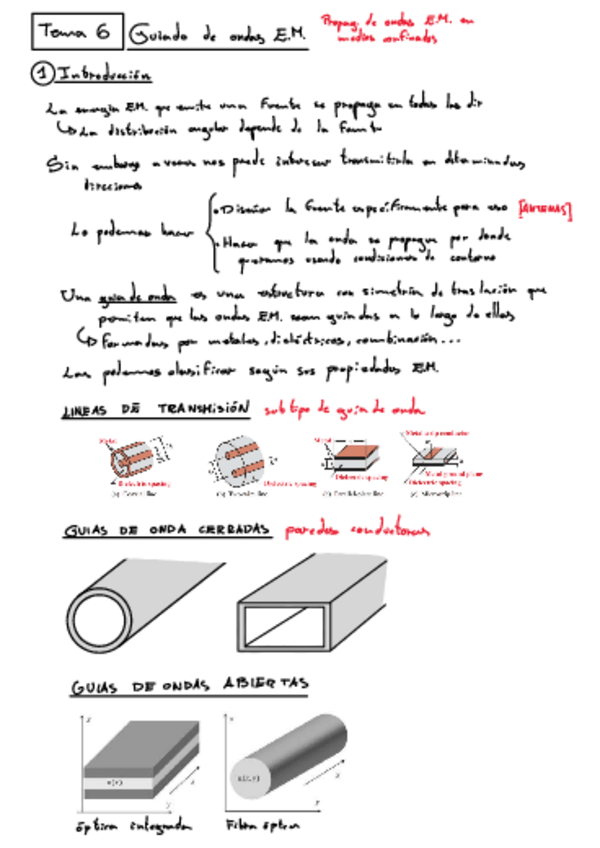 Tema 6 Guiado de ondas E.M. Propag. de ondas E.M. en
medios confinados
1 Introducción
La energía E.M. que emite una fuente se propaga en todas las dir
↳ La distribución angular depende de la fuente
Sin embargo a veces nos puede interesar transmitirla en determinadas
direcciones
Lo podemos hacer
• Diseñar la fuente específicamente para eso [ANTENAS]
• Hacer que la onda se propague por donde
queramos usando condiciones de contorno
Una guía de onda es una estructura con simetría de traslación que
permiten que las ondas E.M. sean guiadas a lo largo de ellas
↳ Formadas por metales, dieléctricos, combinación...
Las podemos clasificar según sus propiedades E.M.
LINEAS DE TRANSMISIÓN subtipo de guía de onda
Metal
Dielectric spacing
(a) Coaxial line
Dielectric spacing
(b) Two-wire line
Metal
Dielectric spacing
Metal strip conductor
Metal ground plane
Dielectric spacing
(d) Microstrip line
GUIAS DE ONDA CERRADAS paredes conductoras
GUIAS DE ONDAS ABIERTAS
óptica integrada
Fibra óptica